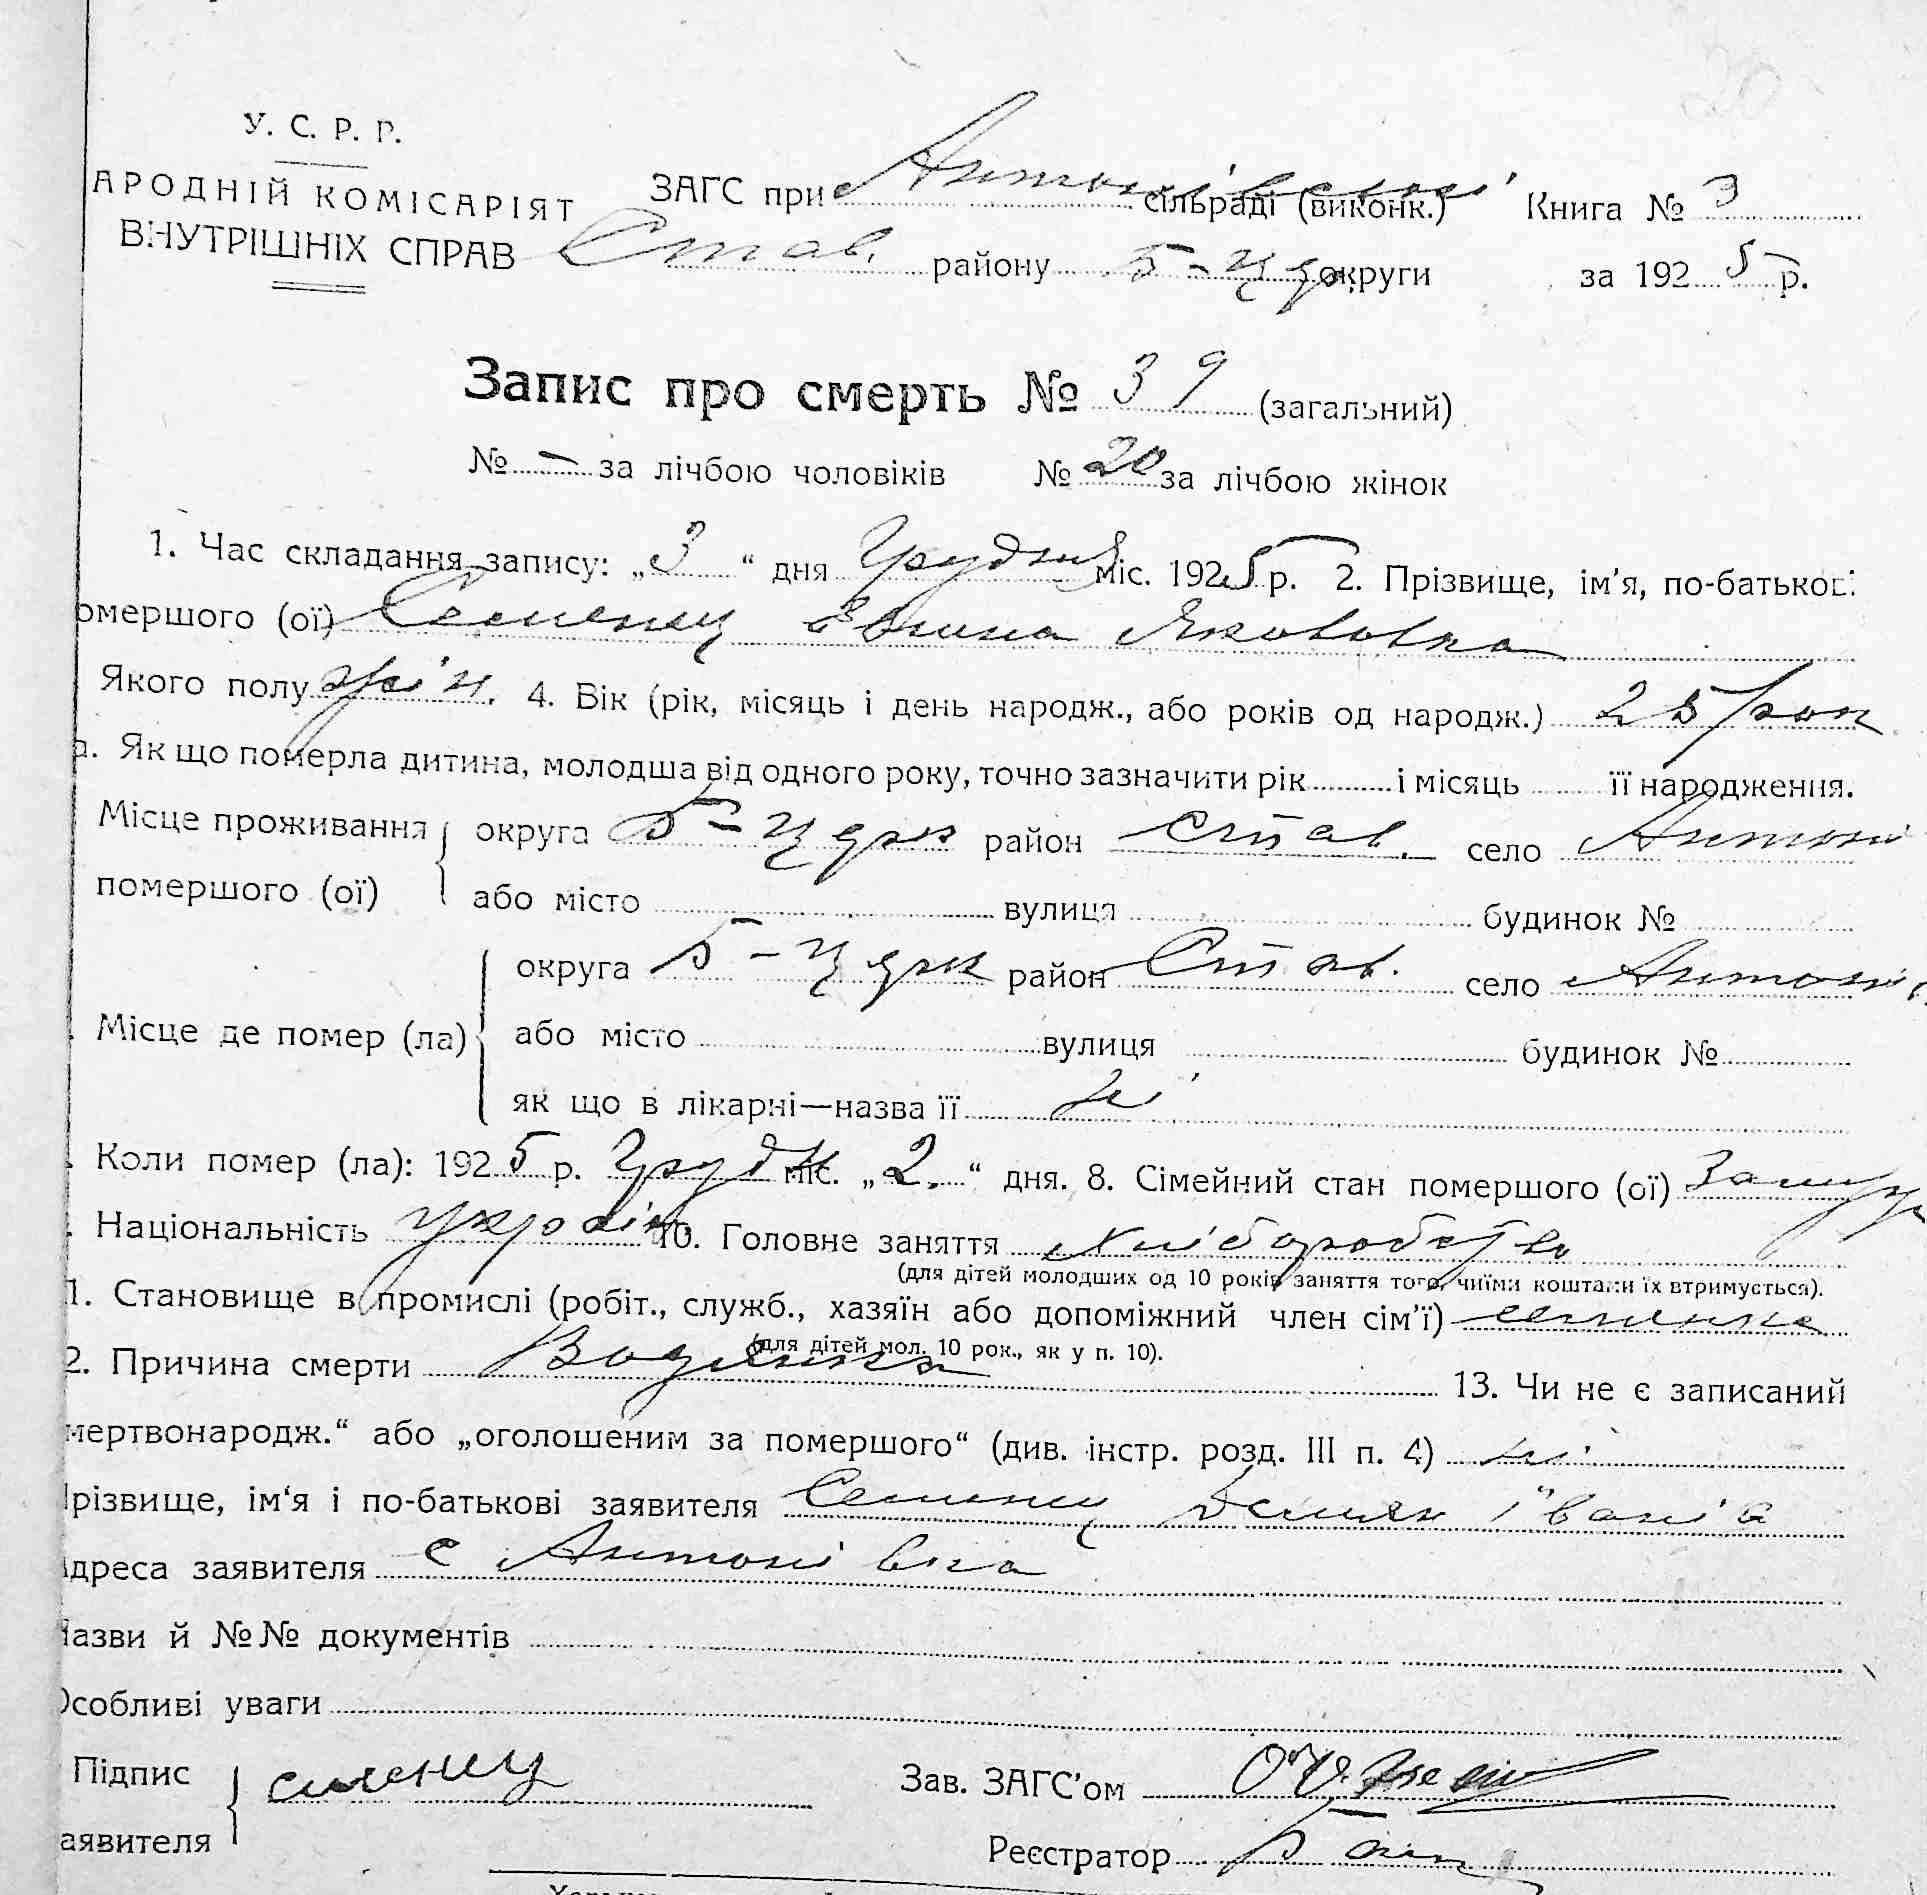 20
У. С. Р. Р.
АРОДНІЙ КОМІСАРІЯТ
ВНУТРІШНІХ СПРАВ
ЗАГС при Антонівської сільраді (виконк.) Книга № 3
Став. району Б-Цер. округи за 1925 р.
Запис про смерть № 39 (загальний)
№ – за лічбою чоловіків № 20 за лічбою жінок
1. Час складання запису: „3“ дня Грудня міс. 1925 р. 2. Прізвище, ім'я, по-батькові
омершого (ої) Семенец Якововна
Якого полу жін. 4. Вік (рік, місяць і день народж., або років од народж.) 25 рок
а. Як що померла дитина, молодша від одного року, точно зазначити рік і місяць її народження.
Місце проживання помершого (ої) округа Б-Церк район Став. село Антоні
або місто вулиця будинок №
Місце де помер (ла) округа Б-Церк район Став. село Антоні
або місто вулиця будинок №
як що в лікарні—назва її ні
Коли помер (ла): 1925 р. Грудн міс. „2.“ дня. 8. Сімейний стан помершого (ої) Замуж
Національність україн. 10. Головне заняття хліборобство
(для дітей молодших од 10 років заняття того, чиїми коштами їх втримується).
1. Становище в промислі (робіт., служб., хазяїн або допоміжний член сім'ї)
(для дітей мол. 10 рок., як у п. 10).
2. Причина смерти Водянка 13. Чи не є записаний
мертвонародж.“ або „оголошеним за помершого“ (див. інстр. розд. III п. 4) ні
різвище, ім'я і по-батькові заявителя Семенец Демян Іванів
дреса заявителя с Антонівка
азви й №№ документів
Особливі уваги
Підпис заявителя семенец
Зав. ЗАГС'ом
Реєстратор